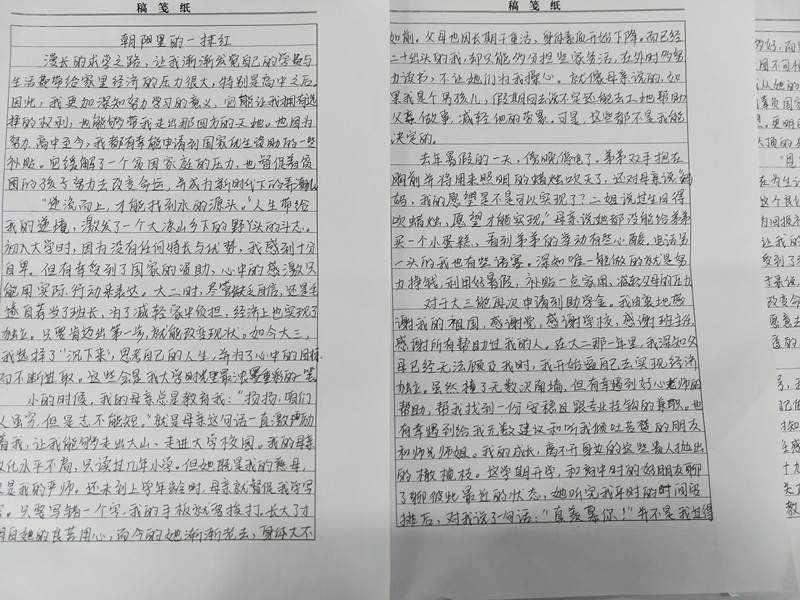 稿笺纸
朝阳里的一抹红
漫长的求学之路，让我渐渐发觉自己的学费与
生活费带给家里经济的压力很大，特别是高中之后。
因此，我更加深知努力学习的意义，它能让我拥有选
择的权利，也能够带我走出那四方的天地。也因为
努力，高中至今，我都有幸能申请到国家对学生资助的一些
补贴。它缓解了一个贫困家庭的压力，也督促着贫
困的孩子努力去改变命运，并成为新时代下的弄潮儿。
“逆流而上，才能找到水的源头。”人生带给
我的逆境，激发了一个大凉山乡下的野丫头的斗志。
初入大学时，因为没有任何特长与优势，我感到十分
自卑。但有幸受到了国家的资助，心中的感激只
能用实际行动来表达。大二时，尽管缺乏自信，还是毛
遂自荐当了班长，为了减轻家中负担，经济上也实现了
独立。只要肯迈出第一步，就能改变现状。如今大三，
我选择了“沉下来”，思考自己的人生，并为了心中的目标
而不断进取。这些会是我大学时光里最浓墨重彩的一笔
小的时候，我的母亲总是教育我：“扬扬，咱们
人虽穷，但是志不能短。”就是母亲这句话一直激励
着我，让我能够走出大山、走进大学校园。我的母亲
文化水平不高，只读过几年小学。但她既是我的慈母，
又是我的严师。还未到上学年龄时，母亲就督促我学写
字。只要写错一个字，我的手板就要挨打。长大了才
明白她的良苦用心，而今的她渐渐老去，身体大不
稿笺纸
如前。父母也因长期干重活，身体素质开始下降。而已经
二十出头的我，却只能多分担些家务活，在外时多努
力读书，不让她们为我操心。就像母亲说的，如
果我是个男孩儿，假期回去说不定还能去工地帮助
父亲做事，减轻他的负累。可是，这些都不是我能
决定的。
去年暑假的一天，傍晚停电了。弟弟双手抱在
胸前并将用来照明的蜡烛吹灭了，还对母亲说“妈
妈，我的愿望是不是可以实现了？二姐说过生日得
吹蜡烛，愿望才能实现。”母亲说她都没能给弟弟
买一个小蛋糕，看到弟弟的举动有些心酸，电话另
一头的我也有些语塞。深知唯一能做的就是努
力挣钱，利用好暑假，补贴一点家用，减轻父母的压力
对于大三能再次申请到助学金。我由衷地感
谢我的祖国，感谢党，感谢学校，感谢班主任，
感谢所有帮助过我的人。在大二那一年里，我深知父
母已经无法顾及我时，我开始逼自己去实现经济
独立。虽然撞了无数次南墙，但有幸遇到好心老师的
帮助，帮我找到一份安稳且跟专业挂钩的兼职。也
有幸遇到给我无数建议和听我倾吐苦楚的朋友
和师兄师姐。我的成长，离不开身边的这些贵人抛出
的橄榄枝。这学期开学，和高中时的好朋友聊
了聊彼此最近的状态，她听完我平时的时间安
排后，对我说了一句话：“真羡慕你！”并不是我过得